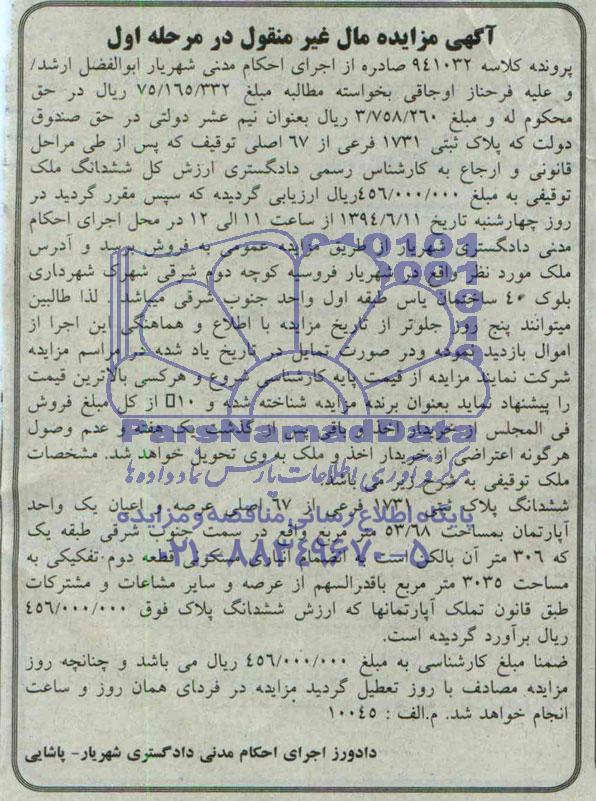 آگهی مزایده مال غیر منقول در مرحله اول
پرونده کلاسه ۹٤۱۰۳۲ صادره از اجرای احکام مدنی شهریار ابوالفضل ارشد/
و علیه فرحناز اوجاقی بخواسته مطالبه مبلغ ۷۵/۱٦۵/۳۳۲ ریال در حق
محکوم له و مبلغ ۳/۷۵۸/۲٦۰ ریال بعنوان نیم عشر دولتی در حق صندوق
دولت که پلاک ثبتی ۱۷۳۱ فرعی از ٦۷ اصلی توقیف که پس از طی مراحل
قانونی و ارجاع به کارشناس رسمی دادگستری ارزش کل ششدانگ ملک
توقیفی به مبلغ ٤۵٦/۰۰۰/۰۰۰ریال ارزیابی گردیده که سپس مقرر گردید در
روز چهارشنبه تاریخ ۱۳۹٤/٦/۱۱ از ساعت ۱۱ الی ۱۲ در محل اجرای احکام
مدنی دادگستری شهریار از طریق مزایده عمومی به فروش برسد و آدرس
ملک مورد نظر واقع در شهریار فردوسیه کوچه دوم شرقی شهرک شهرداری
بلوک ٤۰ ساختمان یاس طبقه اول واحد جنوب شرقی میباشد . لذا طالبین
میتوانند پنج روز جلوتر از تاریخ مزایده با اطلاع و هماهنگی این اجرا از
اموال بازدید نموده ودر صورت تمایل در تاریخ یاد شده در مراسم مزایده
شرکت نمایند مزایده از قیمت پایه کارشناسی شروع و هرکسی بالاترین قیمت
را پیشنهاد نماید بعنوان برنده مزایده شناخته شده و ۱۰□ از کل مبلغ فروش
فی المجلس از خریدار اخذ و باقی پس از گذشت یک هفته و عدم وصول
هرگونه اعتراضی از خریدار اخذ و ملک به وی تحویل خواهد شد. مشخصات
ملک توقیفی به شرح زیر می باشد.
ششدانگ پلاک ثبتی ۱۷۳۱ فرعی از ٦۷ اصلی عرصه و اعیان یک واحد
آپارتمان بمساحت ۵۳/٦۸ متر مربع واقع در سمت جنوب شرقی طبقه یک
که ۳۰٦ متر آن بالکن است به انضمام انباری مسکونی قطعه دوم تفکیکی به
مساحت ۳۰۳۵ متر مربع باقدرالسهم از عرصه و سایر مشاعات و مشترکات
طبق قانون تملک آپارتمانها که ارزش ششدانگ پلاک فوق ٤۵٦/۰۰۰/۰۰۰
ریال برآورد گردیده است.
ضمنا مبلغ کارشناسی به مبلغ ٤۵٦/۰۰۰/۰۰۰ ریال می باشد و چنانچه روز
مزایده مصادف با روز تعطیل گردید مزایده در فردای همان روز و ساعت
انجام خواهد شد. م.الف : ۱۰۰٤۵
دادورز اجرای احکام مدنی دادگستری شهریار- پاشایی
ParsNamadData
مرکز فرآوری اطلاعات پارس نماد داده ها
پایگاه اطلاع رسانی مناقصه و مزایده
۰۲۱-۸۸۳۴۹۶۷۰-۵